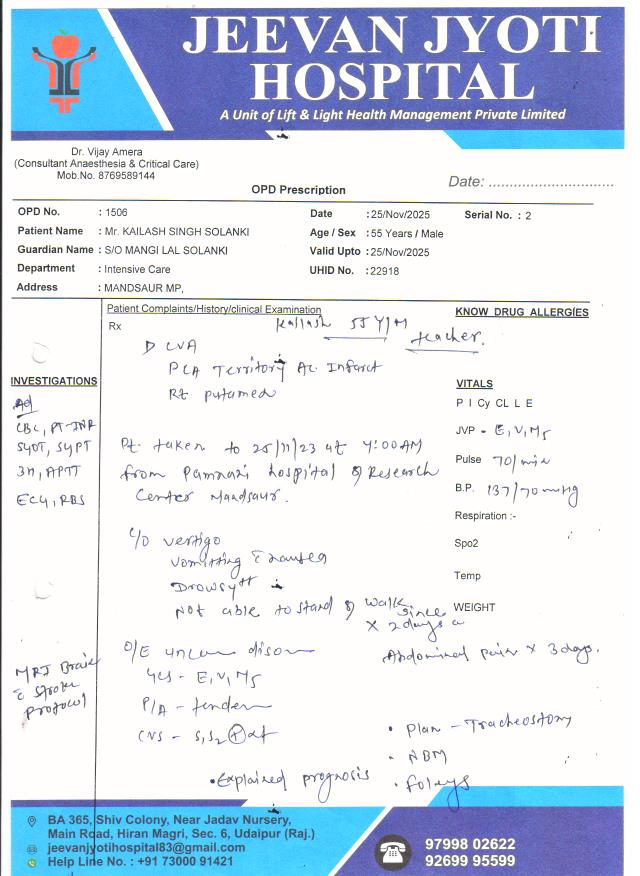 JEEVAN JYOTI
HOSPITAL
A Unit of Lift & Light Health Management Private Limited
Dr. Vijay Amera
(Consultant Anaesthesia & Critical Care)
Mob.No. 8769589144
Date: ................................
OPD Prescription
OPD No. : 1506 Date :25/Nov/2025 Serial No. : 2
Patient Name : Mr. KAILASH SINGH SOLANKI Age / Sex :55 Years / Male
Guardian Name : S/O MANGI LAL SOLANKI Valid Upto :25/Nov/2025
Department : Intensive Care UHID No. :22918
Address : MANDSAUR MP,
Patient Complaints/History/clinical Examination KNOW DRUG ALLERGIES
Rx Kailash 55 Y/M
teacher.
D CVA
PCA Territory Ac Infarct
Rt putamen
INVESTIGATIONS
Ad
CBC, PT-INR
SGOT, SGPT
APTT
ECG, RBS
VITALS
P I Cy CL L E
JVP - E, V, M5
Pulse 70/min
B.P. 137/70 mmHg
Respiration :-
Spo2
Temp
WEIGHT
Pt. taken to 25/11/23 at 4:00 AM
from hospital & Research
Center Mandsaur.
C/O vertigo
Vomitting nausea
Drowsy
Not able to stand & walk since
x 2 days
Abdominal pain x 3 days.
O/E
GCS - E, V, M5
P/A - tender
CVS - S1 S2
MRI Brain
stroke
protocol
• Plan - Tracheostomy
• NBM
• Foleys
• Explained prognosis
BA 365, Shiv Colony, Near Jadav Nursery,
Main Road, Hiran Magri, Sec. 6, Udaipur (Raj.)
jeevanjyotihospital83@gmail.com
Help Line No. : +91 73000 91421
97998 02622
92699 95599